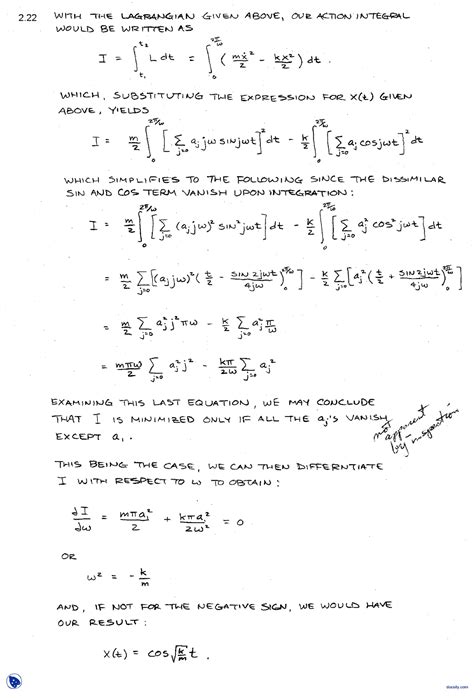 2.22 WITH THE LAGRANGIAN GIVEN ABOVE, OUR ACTION INTEGRAL
WOULD BE WRITTEN AS
I = ∫_{t₁}^{t₂} L dt = ∫_0^{2π/ω} (mẋ²/2 - kx²/2) dt .
WHICH, SUBSTITUTING THE EXPRESSION FOR X(t) GIVEN
ABOVE, YIELDS
I = m/2 ∫_0^{2π/ω} [Σ_{j=0} a_j jω sin jωt]² dt - k/2 ∫_0^{2π/ω} [Σ_{j=0} a_j cos jωt]² dt
WHICH SIMPLIFIES TO THE FOLLOWING SINCE THE DISSIMILAR
SIN AND COS TERM VANISH UPON INTEGRATION:
I = m/2 ∫_0^{2π/ω} [Σ_{j=0} (a_j jω)² sin² jωt] dt - k/2 ∫_0^{2π/ω} [Σ_{j=0} a_j² cos² jωt] dt
= m/2 Σ_{j=0} [(a_j jω)² (t/2 - SIN 2jωt/4jω)|_0^{2π/ω}] - k/2 Σ_{j=0} [a_j² (t/2 + SIN 2jωt/4jω)|_0^{2π/ω}]
= m/2 Σ_{j=0} a_j² j² πω - k/2 Σ_{j=0} a_j² π/ω
= mπω/2 Σ_{j=0} a_j² j² - kπ/2ω Σ_{j=0} a_j²
EXAMINING THIS LAST EQUATION, WE MAY CONCLUDE
THAT I IS MINIMIZED ONLY IF ALL THE a_j's VANISH
EXCEPT a₁.
not apparent
by inspection
THIS BEING THE CASE, WE CAN THEN DIFFERNTIATE
I WITH RESPECT TO ω TO OBTAIN:
dI/dω = mπa₁²/2 + kπa₁²/2ω² = 0
OR
ω² = - k/m
AND, IF NOT FOR THE NEGATIVE SIGN, WE WOULD HAVE
OUR RESULT:
X(t) = COS √(k/m) t .
docsity.com